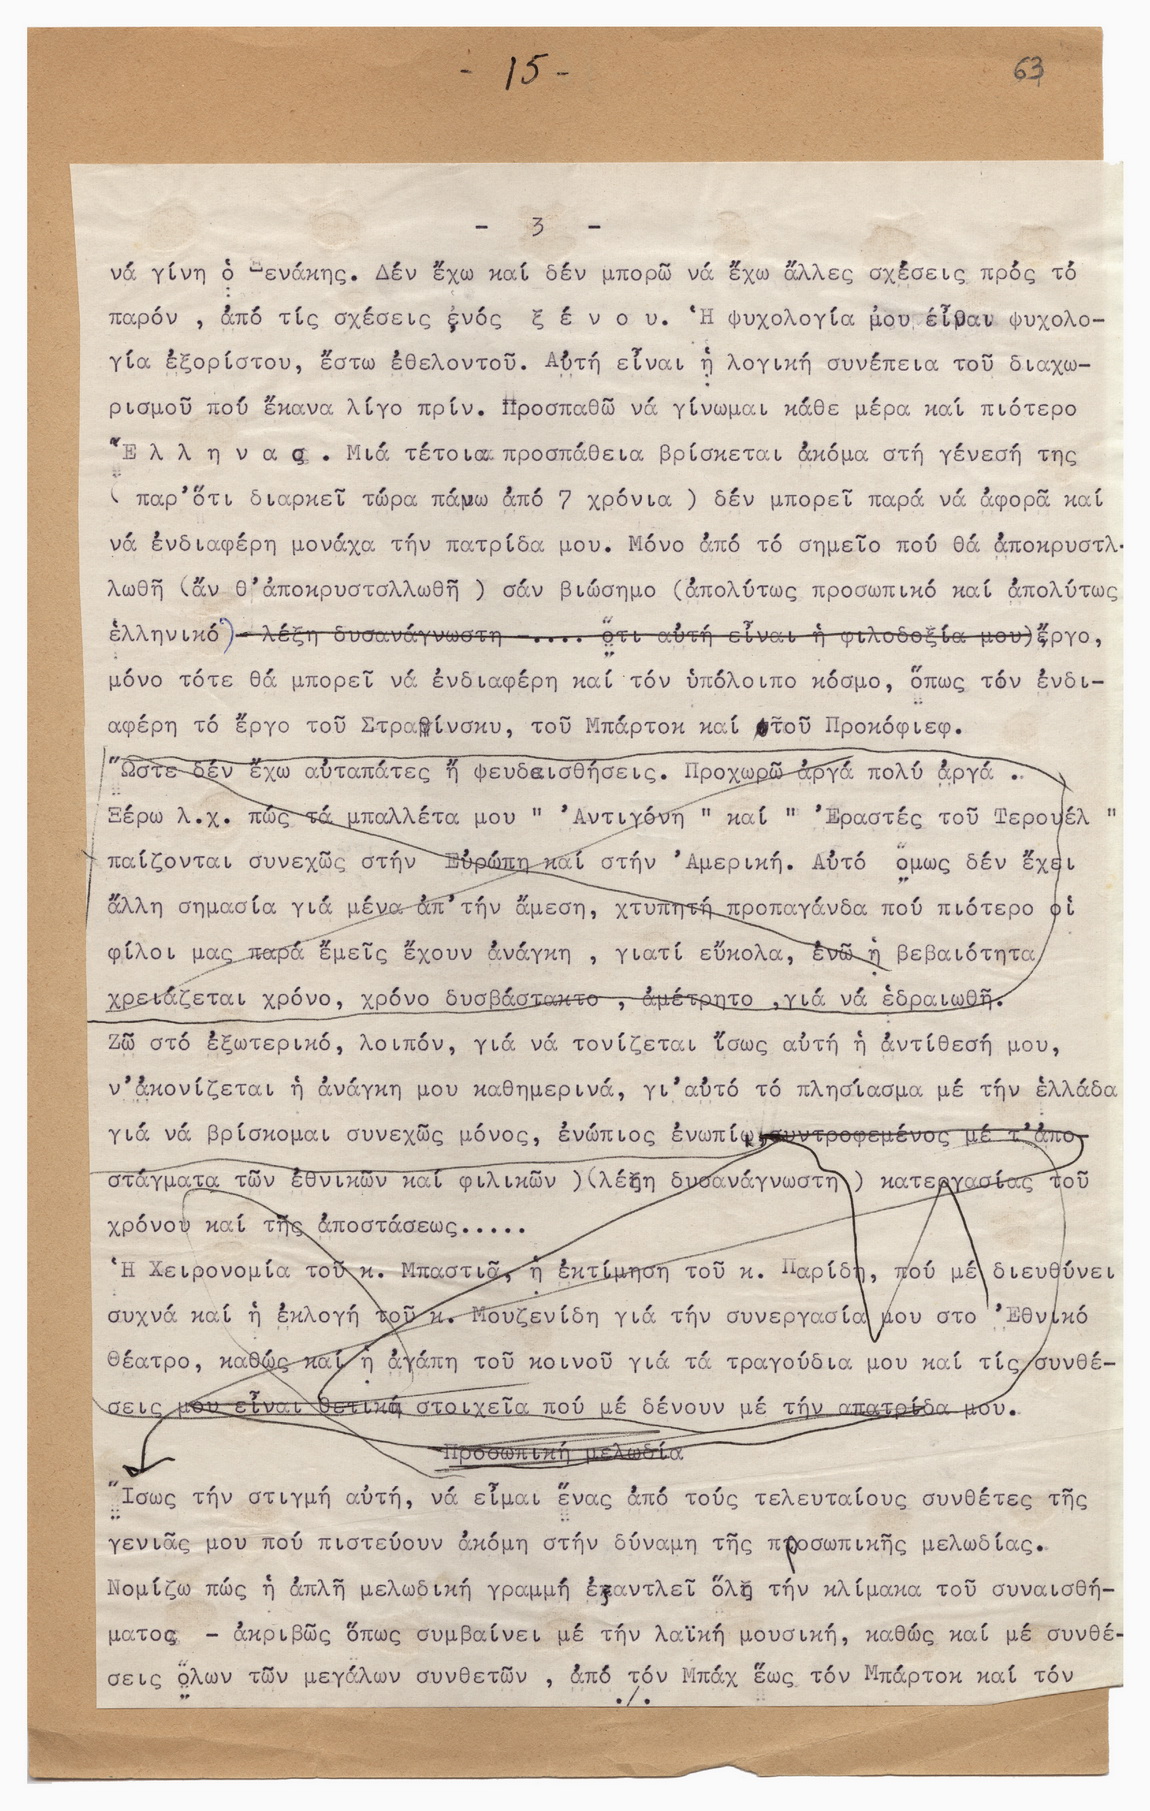 - 15 -
63
- 3 -
νά γίνη ὁ Ξενάκης. Δέν ἔχω καί δέν μπορῶ νά ἔχω ἄλλες σχέσεις πρός τό
παρόν , ἀπό τίς σχέσεις ἑνός ξ έ ν ο υ. Ἡ ψυχολογία μου εἶναι ψυχολο-
γία ἐξορίστου, ἔστω ἐθελοντοῦ. Αὐτή εἶναι ἡ λογική συνέπεια τοῦ διαχω-
ρισμοῦ πού ἔκανα λίγο πρίν. Προσπαθῶ νά γίνωμαι κάθε μέρα καί πιότερο
Ἕ λ λ η ν α ς . Μιά τέτοια προσπάθεια βρίσκεται ἀκόμα στή γένεσή της
( παρ' ὅτι διαρκεῖ τώρα πάνω ἀπό 7 χρόνια ) δέν μπορεῖ παρά νά ἀφορᾶ καί
νά ἐνδιαφέρη μονάχα τήν πατρίδα μου. Μόνο ἀπό τό σημεῖο πού θά ἀποκρυστλ-
λωθῆ (ἄν θ' ἀποκρυστσλλωθῆ ) σάν βιώσημο (ἀπολύτως προσωπικό καί ἀπολύτως
ἑλληνικό) - λέξη δυσανάγνωστη -.... ὅτι αὐτή εἶναι ἡ φιλοδοξία μου) ἔργο,
μόνο τότε θά μπορεῖ νά ἐνδιαφέρη καί τόν ὑπόλοιπο κόσμο, ὅπως τόν ἐνδι-
αφέρη τό ἔργο τοῦ Στραβίνσκυ, τοῦ Μπάρτοκ καί τοῦ Προκόφιεφ.
Ὥστε δέν ἔχω αὐταπάτες ἤ ψευδαισθήσεις. Προχωρῶ ἀργά πολύ ἀργά ..
Ξέρω λ.χ. πώς τά μπαλλέτα μου " Ἀντιγόνη " καί " Ἐραστές τοῦ Τερουέλ "
παίζονται συνεχῶς στήν Εὐρώπη καί στήν Ἀμερική. Αὐτό ὅμως δέν ἔχει
ἄλλη σημασία γιά μένα ἀπ' τήν ἄμεση, χτυπητή προπαγάνδα πού πιότερο οἱ
φίλοι μας παρά ἐμεῖς ἔχουν ἀνάγκη , γιατί εὔκολα, ἐνῶ ἡ βεβαιότητα
χρειάζεται χρόνο, χρόνο δυσβάστακτο , ἀμέτρητο ,γιά νά ἑδραιωθῆ.
Ζῶ στό ἐξωτερικό, λοιπόν, γιά νά τονίζεται ἴσως αὐτή ἡ ἀντίθεσή μου,
ν' ἀκονίζεται ἡ ἀνάγκη μου καθημερινά, γι' αὐτό τό πλησίασμα μέ τήν ἑλλάδα
γιά νά βρίσκομαι συνεχῶς μόνος, ἐνώπιος ἐνωπίῳ, συντροφεμένος μέ τ' ἀπο-
στάγματα τῶν ἐθνικῶν καί φιλικῶν )(λέξη δυσανάγνωστη ) κατεργασίας τοῦ
χρόνου καί τῆς ἀποστάσεως.....
Ἡ Χειρονομία τοῦ κ. Μπαστιᾶ, ἡ ἐκτίμηση τοῦ κ. Παρίδη, πού μέ διευθύνει
συχνά καί ἡ ἐκλογή τοῦ κ. Μουζενίδη γιά τήν συνεργασία μου στο Ἐθνικό
Θέατρο, καθώς καί ἡ ἀγάπη τοῦ κοινοῦ γιά τά τραγούδια μου καί τίς συνθέ-
σεις μου εἶναι θετικά στοιχεῖα πού μέ δένουν μέ τήν απατρίδα μου.
Προσωπική μελωδία
Ἴσως τήν στιγμή αὐτή, νά εἶμαι ἕνας ἀπό τούς τελευταίους συνθέτες τῆς
γενιᾶς μου πού πιστεύουν ἀκόμη στήν δύναμη τῆς προσωπικῆς μελωδίας.
Νομίζω πώς ἡ ἁπλῆ μελωδική γραμμή ἐξαντλεῖ ὅλη τήν κλίμακα τοῦ συναισθή-
ματος - ἀκριβῶς ὅπως συμβαίνει μέ τήν λαϊκή μουσική, καθώς καί μέ συνθέ-
σεις ὅλων τῶν μεγάλων συνθετῶν , ἀπό τόν Μπάχ ἕως τόν Μπάρτοκ καί τόν
./.